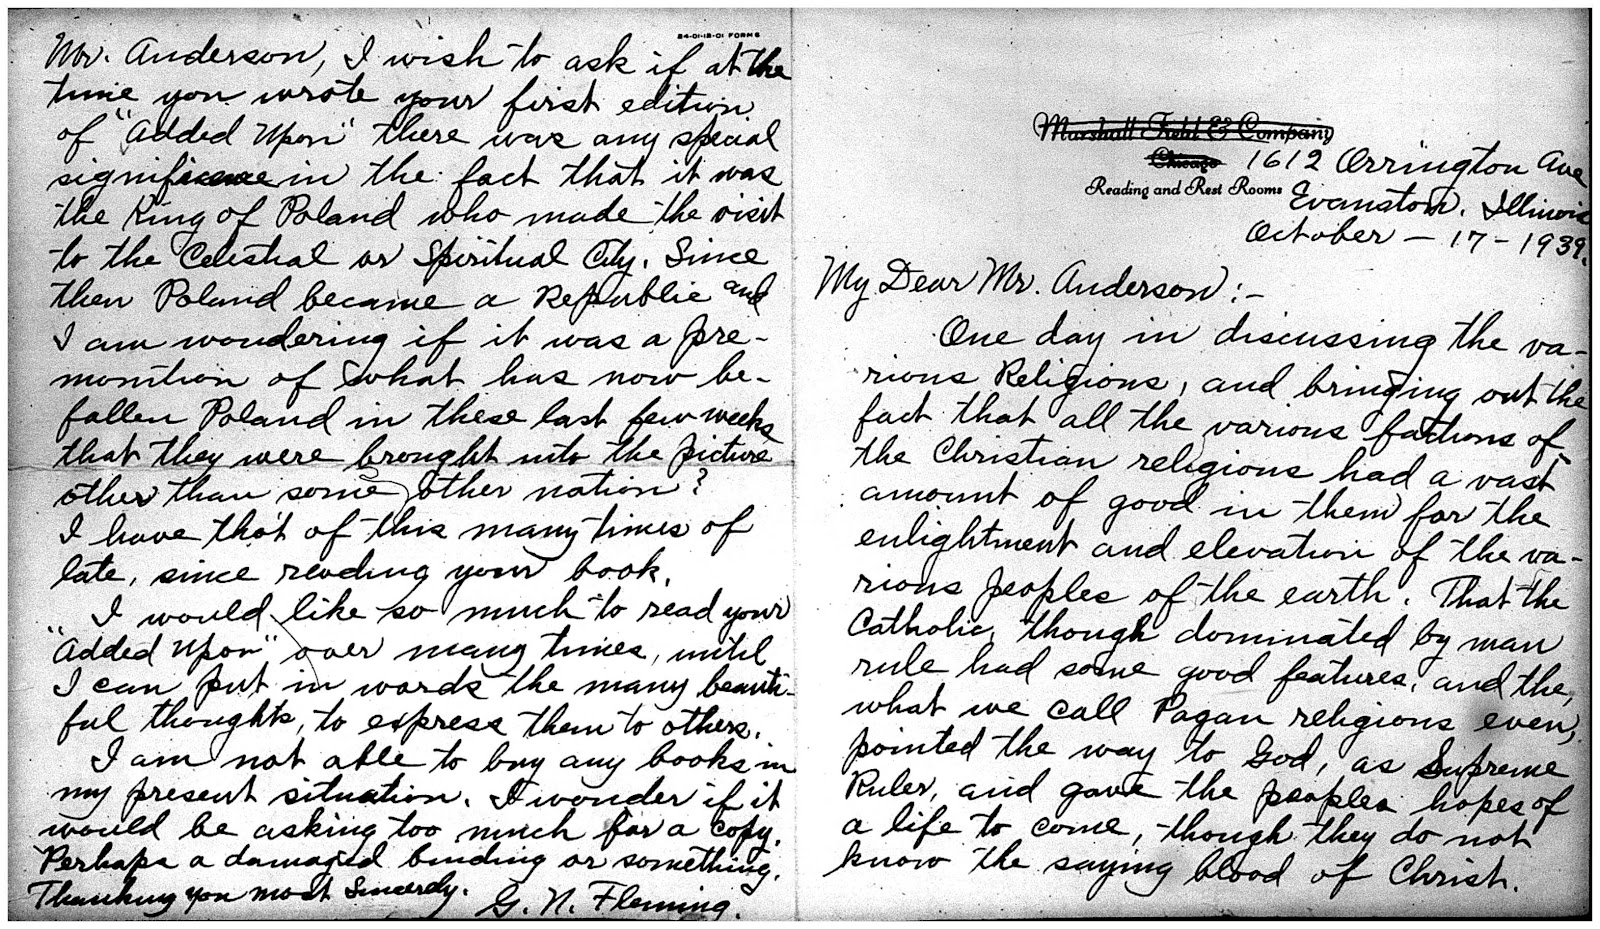 24-01-12-01 FORMS
Mr. Anderson, I wish to ask if at the
time you wrote your first edition
of "Added Upon" there was any special
significance in the fact that it was
the King of Poland who made the visit
to the Celestial or Spiritual City. Since
then Poland became a Republic and
I am wondering if it was a pre-
monition of what has now be-
fallen Poland in these last few weeks
that they were brought into the picture
other than some other nation?
I have that of this many times of
late, since reading your book.
I would like so much to read your
"Added Upon" over many times, until
I can put in words the many beauti-
ful thoughts, to express them to others.
I am not able to buy any books in
my present situation. I wonder if it
would be asking too much for a copy.
Perhaps a damaged binding or something.
Thanking you most Sincerely.
G. N. Fleming.
Marshall Field & Company
Chicago 1612 Orrington Ave
Reading and Rest Rooms Evanston. Illinois
October - 17 - 1939.
My Dear Mr. Anderson:-
One day in discussing the va-
rious Religions, and bringing out the
fact that all the various factions of
the Christian religions had a vast
amount of good in them for the
enlightment and elevation of the va-
rious peoples of the earth. That the
Catholic, though dominated by man
rule had some good features, and the,
what we call Pagan religions even,
pointed the way to God, as Supreme
Ruler, and gave the peoples hopes of
a life to come, though they do not
know the saying blood of Christ.